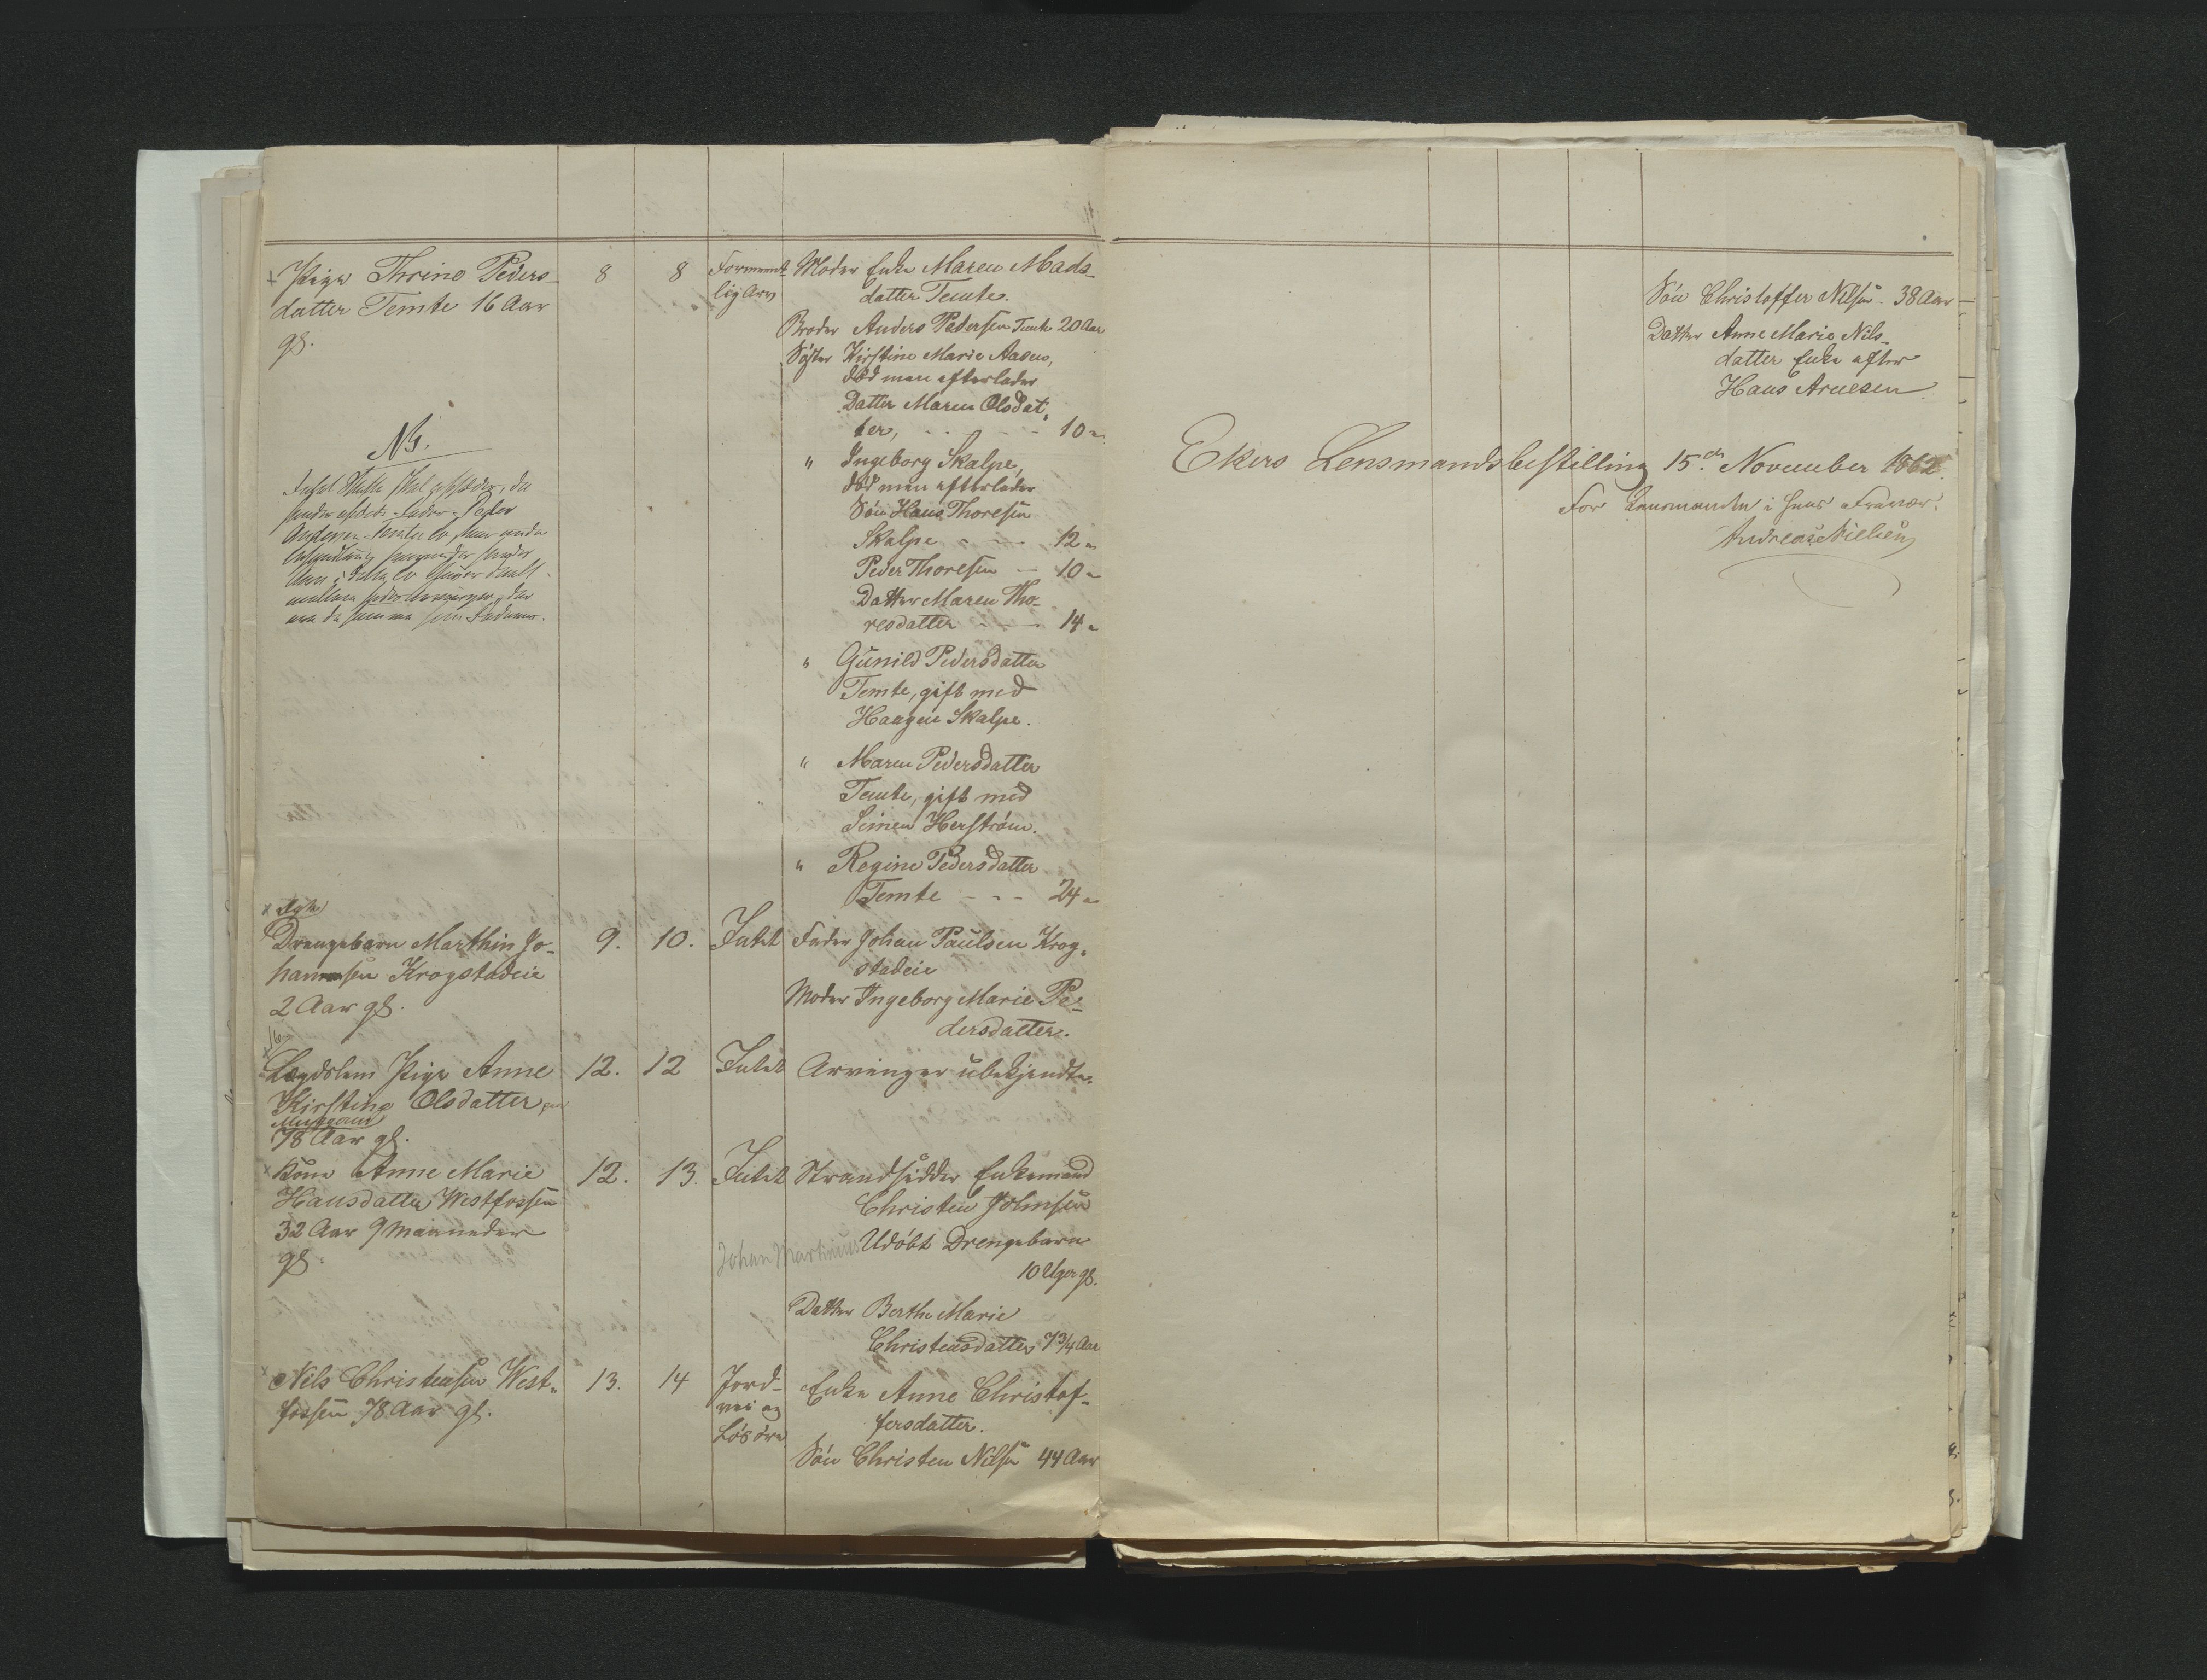 Pige Thrine Peders-
datter Temte 16 Aar
gl.
8
8
Forment-
lig Arv
Moder Enke Maren Mads-
datter Temte.
Broder Anders Pedersen Temte 20 Aar
Søster Kirstine Marie Aasen,
død men efterlader
Datter Maren Olsdat-
ter, - - - - 10 "
" Ingeborg Skalpe,
død men efterlader
Søn Hans Thoresen
Skalpe - - - 12 "
Peder Thoresen - 10 "
Datter Maren Tho-
resdatter - - 14 "
" Gunild Pedersdatter
Temte, gift med
Haagen Skalpe.
" Maren Pedersdatter
Temte, gift med
Simen Herstrøm.
" Regine Pedersdatter
Temte - - - 24 "
NB.
Intet Skifte skal
Fader Peder
Andersen Temte er
Drengebarn Marthin Jo-
hannsen Krogstadeie
2 Aar gl.
9.
10.
Intet
Fader Johan Paulsen Krog-
stadeie
Moder Ingeborg Marie Pe-
dersdatter.
Lægdslem Pige Anne
Kirstine Olsdatter
78 Aar gl.
12.
12
Intet
Arvinger ubekjendte.
Kone Anne Marie
Hansdatter Westfossen
32 Aar 9 Maaneder
gl.
12.
13.
Intet
Strandsidder Enkemand
Christen Johnsen
Johan Martinius Udøbt Drengebarn
10 Uger gl.
Datter Berthe Marie
Christensdatter 7 3/4 Aar
Nils Christensen West-
fossen 78 Aar gl.
13.
14
Jord-
vei og
Løsøre
Enke Anne Christof-
fersdatter.
Søn Christen Nilsen 44 Aar
Søn Christoffer Nilsen - 38 Aar
Datter Anne Marie Nils-
datter Enke efter
Hans Arnesen
Ekers Lensmandsbestilling 15de November 1862.
For Lensmanden i hans Fravær:
Andreas Nielsen